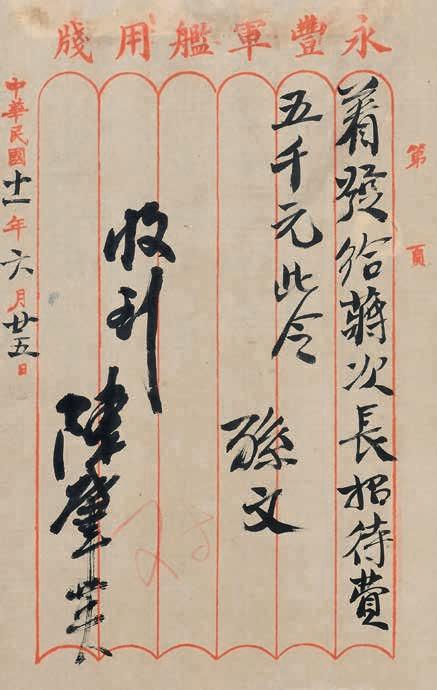 永豐軍艦用牋
第 頁
着發給蔣次長招待費
五千元此令
孫文
收到
陳肇英
中華民國十一年六月廿五日